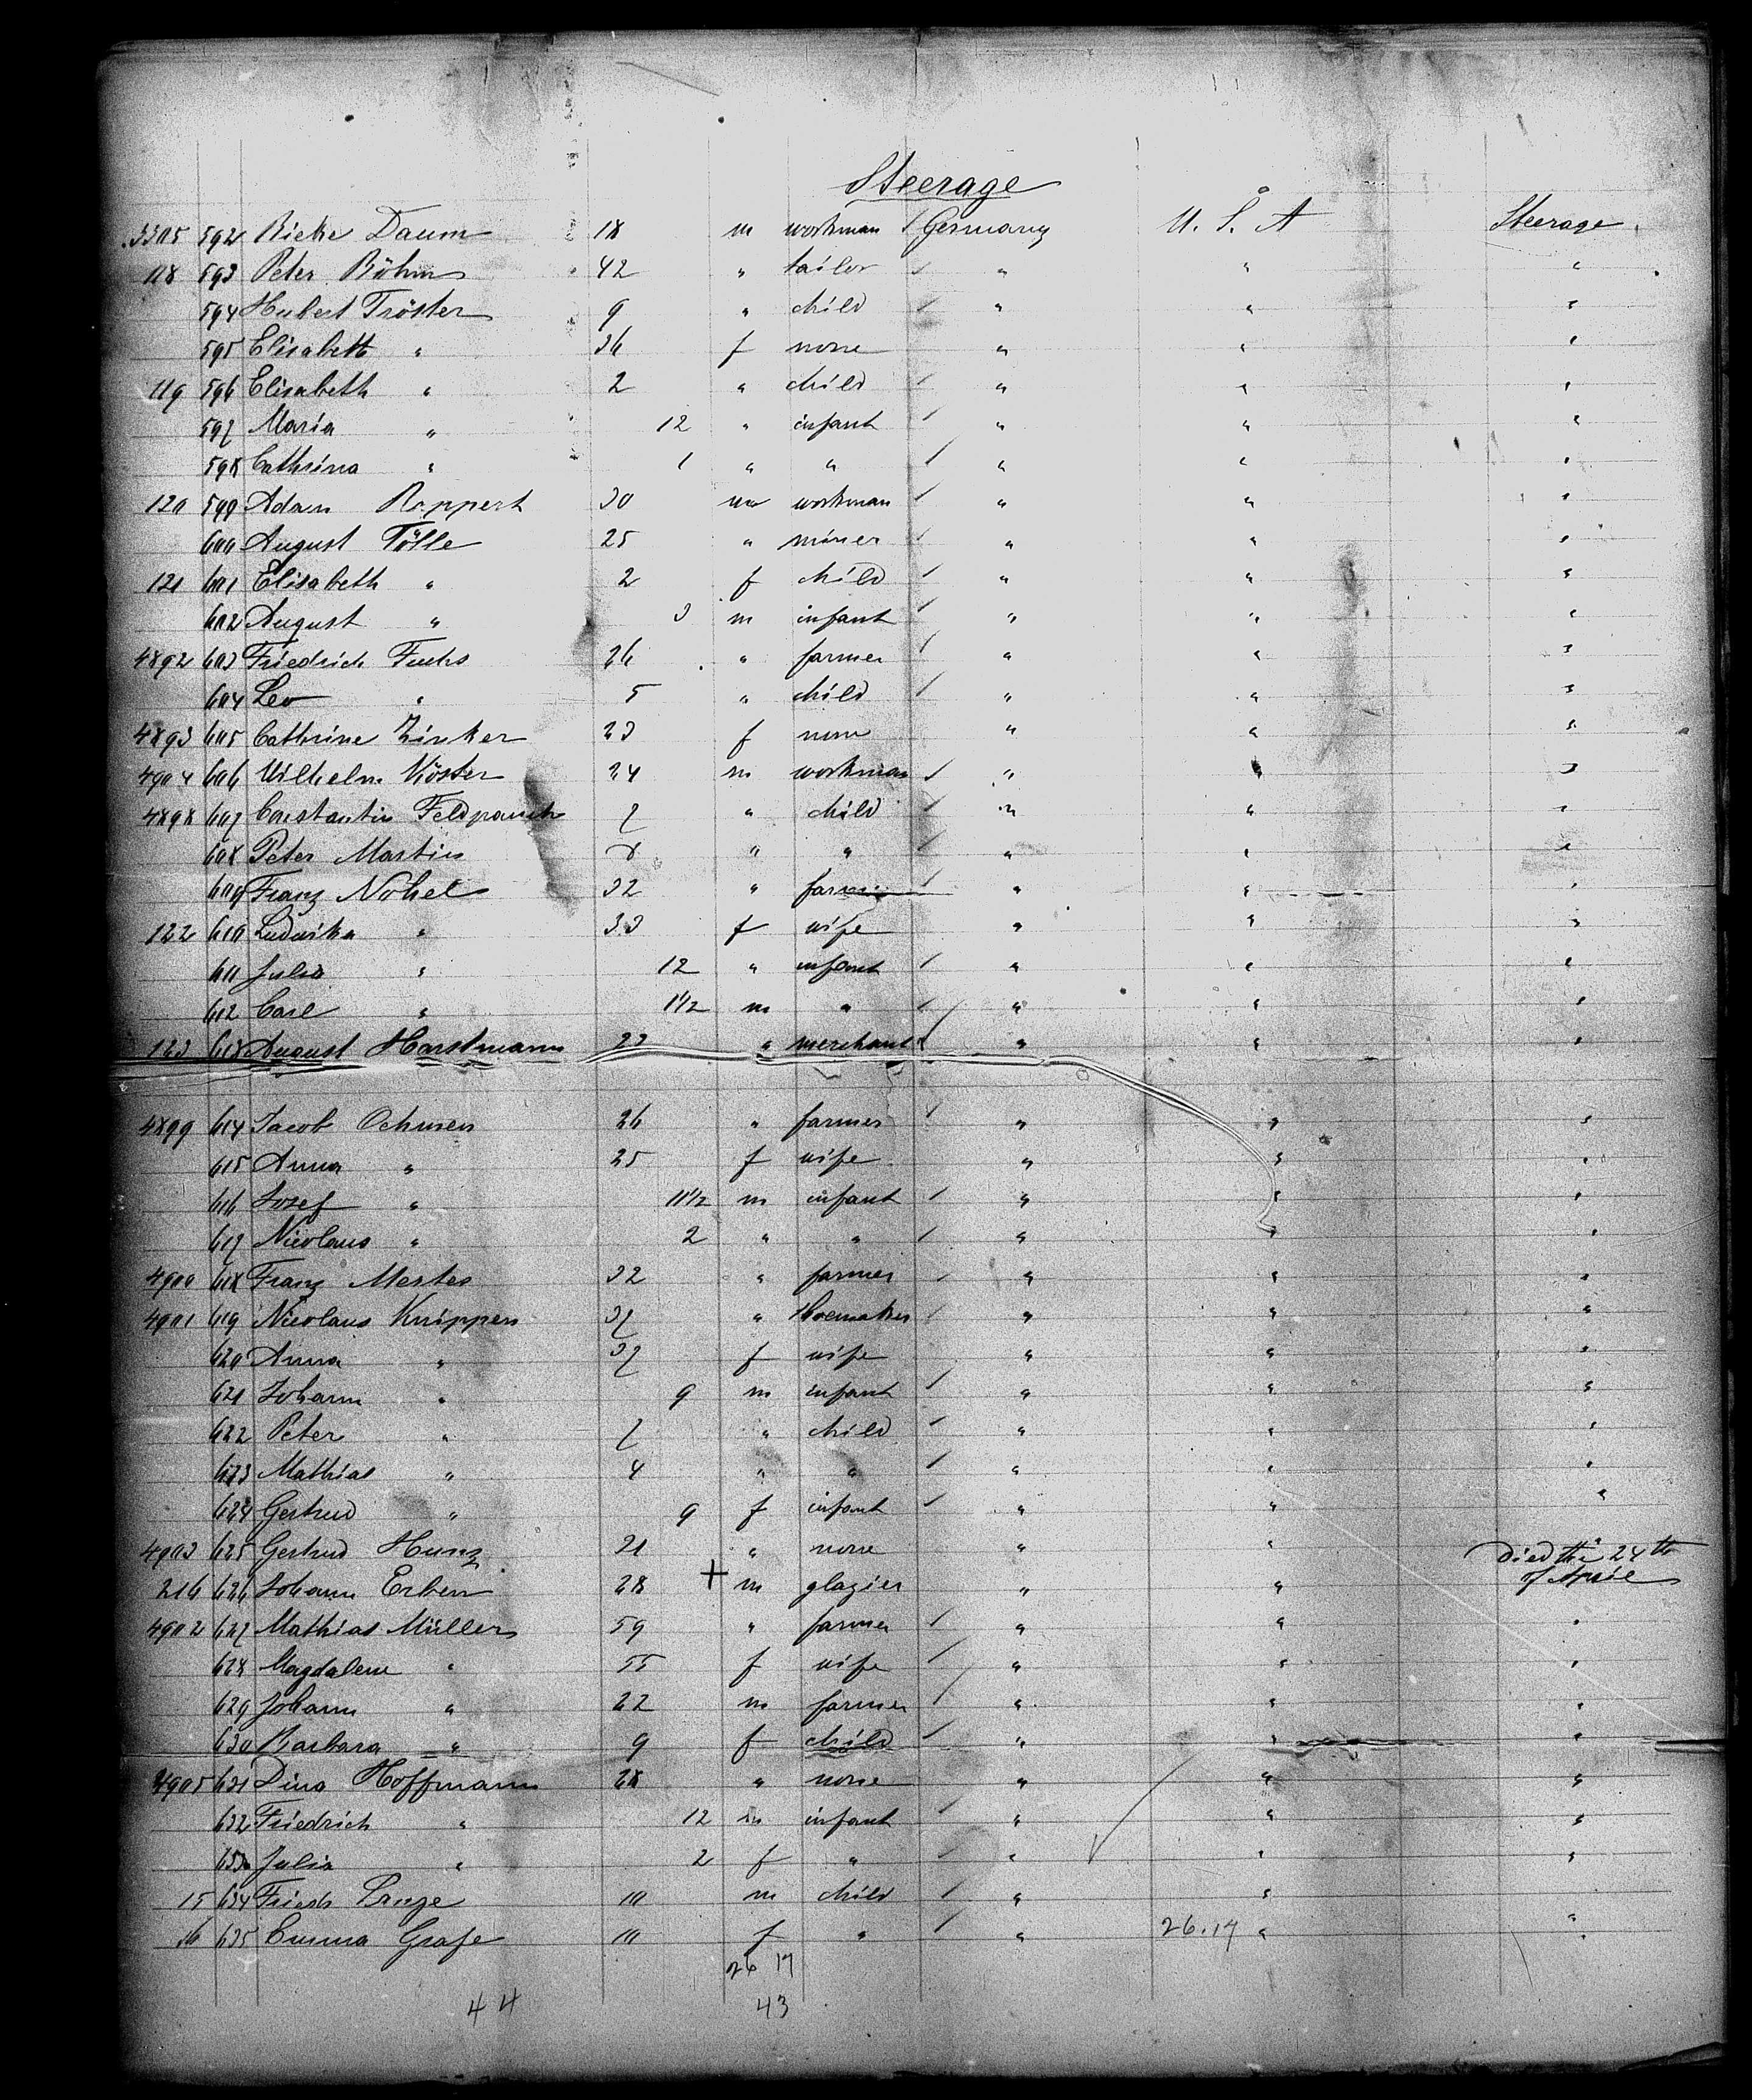 Steerage
3305 592 Rieke Daum 18 m workman / Germany U. S. A Steerage
118 593 Peter Böhm 42 " tailor / " " "
594 Hubert Tröster 9 " child / " " "
595 Elisabeth " 36 f none " " "
119 596 Elisabeth " 2 " child / " " "
597 Maria " 12 " infant / " " "
598 Cathrina " 1 " " / " " "
120 599 Adam Roppert 30 m workman / " " "
600 August Tölle 25 " miner / " " "
121 601 Elisabeth " 2 f child / " " "
602 August " 3 m infant / " " "
4892 603 Friedrich Fuchs 26 " farmer / " " "
604 Leo " 5 " child / " " "
4893 605 Cathrine Zinker 23 f none " " "
4904 606 Wilhelm Köster 24 m workman / " " "
4898 607 Constantin Feldpausch 7 " child / " " "
608 Peter Martin 8 " " / " " "
609 Franz Nohel 32 " farmer / " " "
122 610 Ludwika " 33 f wife " " "
611 Julia " 12 " infant / " " "
612 Carl " 1 1/2 m " / " " "
123 613 August Horstmann 23 " merchant / " " "
4899 614 Jacob Ochmen 26 " farmer / " " "
615 Anna " 25 f wife " " "
616 Josef " 11 1/2 m infant / " " "
617 Nicolaus " 2 " " / " " "
4900 618 Franz Mertes 32 " farmer / " " "
4901 619 Nicolaus Knippen 37 " Shoemaker / " " "
620 Anna " 37 f wife " " "
621 Johann " 9 m infant / " " "
622 Peter " 7 " child / " " "
623 Mathias " 4 " " / " " "
624 Gertrud " 9 f infant / " " "
4903 625 Gertrud Hunz 21 " none " " "
216 626 Johann Erben 28 + m glazier " " Died the 24th of April
4902 627 Mathias Müller 59 " farmer / " " "
628 Magdalene " 55 f wife / " " "
629 Johann " 22 m farmer / " " "
630 Barbara " 9 f child / " " "
4905 631 Dina Hoffmann 28 " none " " "
632 Friedrich " 12 m infant / " " "
633 Julia " 2 f " / " " "
15 634 Friedr 10 m child / " "  "
16 635 Emma Grafe 10 f " / " 26.17 " "
26 17
44 43